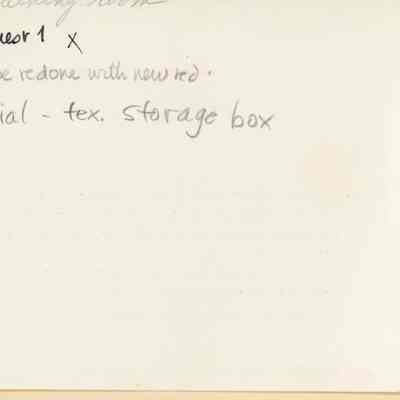 room
1 X
be redone with new red.
ial - tex. storage box